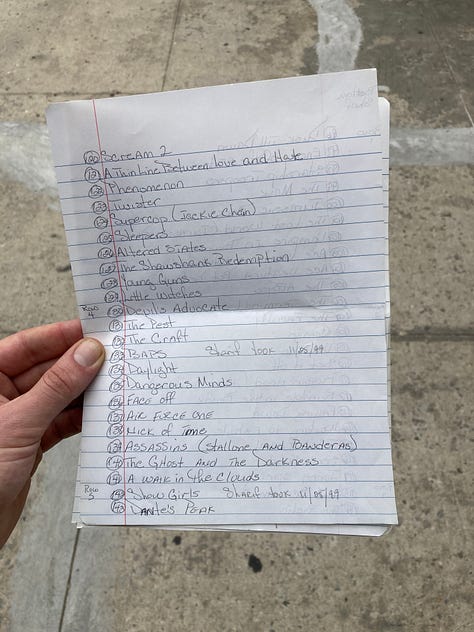 120 Scream 2
121 A Thin Line Between Love and Hate
122 Phenomenon
123 Twister
124 Supercop (Jackie Chan)
125 Sleepers
126 Altered States
127 The Shawshank Redemption
128 Young Guns
129 Little Witches
Row 4 130 Devil's Advocate
131 The Pest
132 The Craft
133 BAPS Sharif took 11/05/99
134 Daylight
135 Dangerous Minds
136 Face off
137 Air Force One
138 Nick of Time
139 Assassins (Stallone, and Banderas)
140 The Ghost And The Darkness
141 A walk in the Clouds
Row 5 142 Show Girls Sharif took 11/05/99
143 Dante's Peak